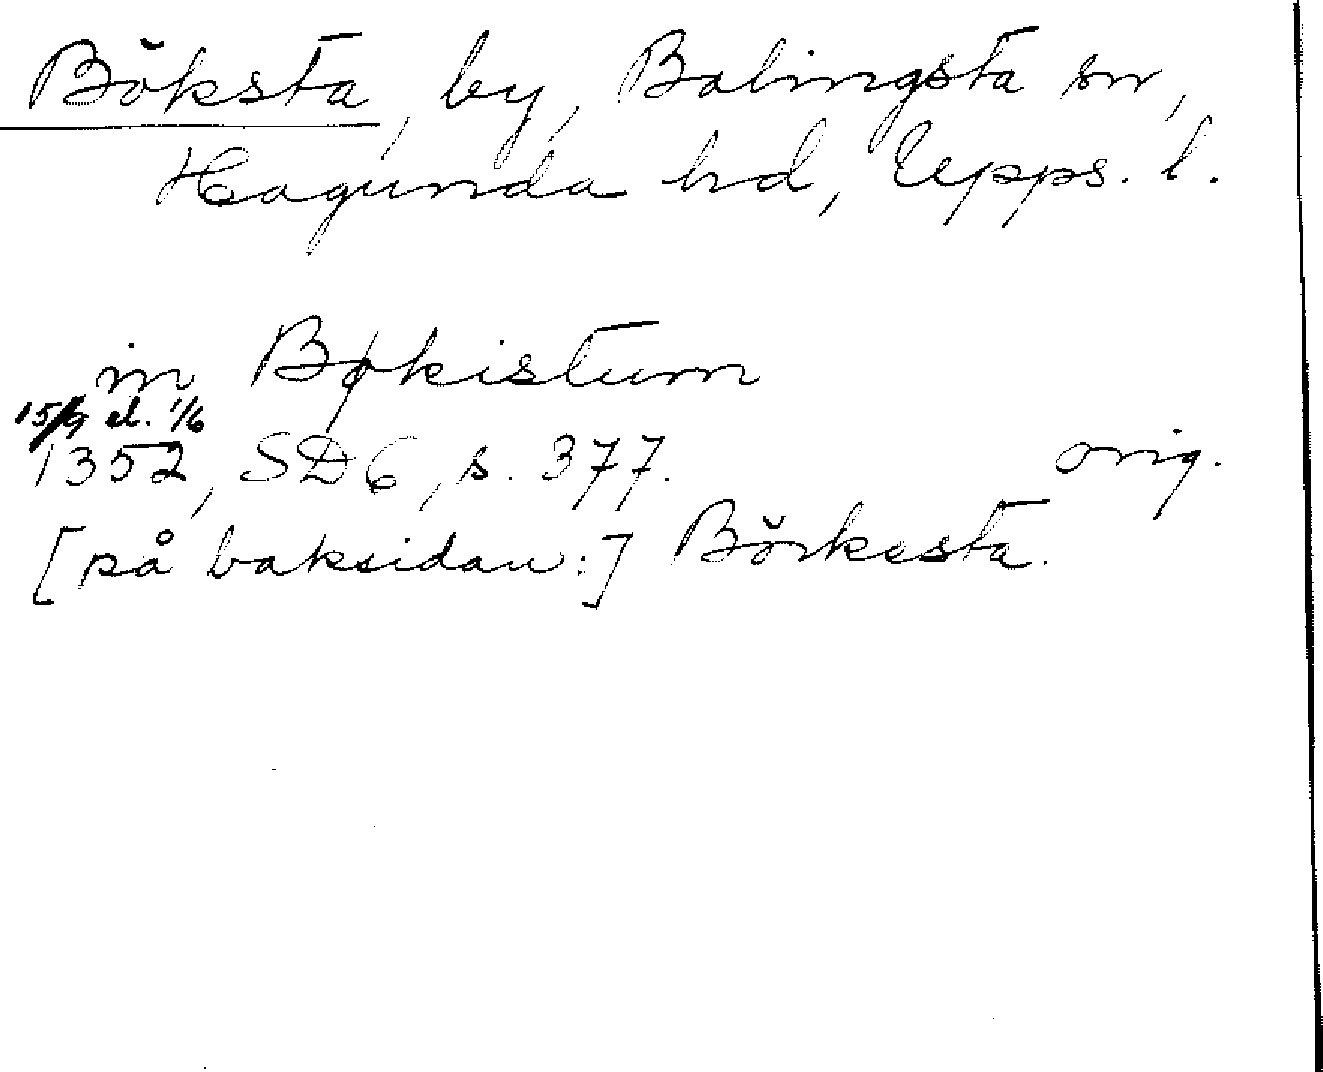 Böksta, by, Balingsta sn,
Hagunda hd, Upps. l.
in Bøkistum
15/9 el. 1/6
1352, SD 6, s. 377. orig.
[på baksidan:] Börkesta.